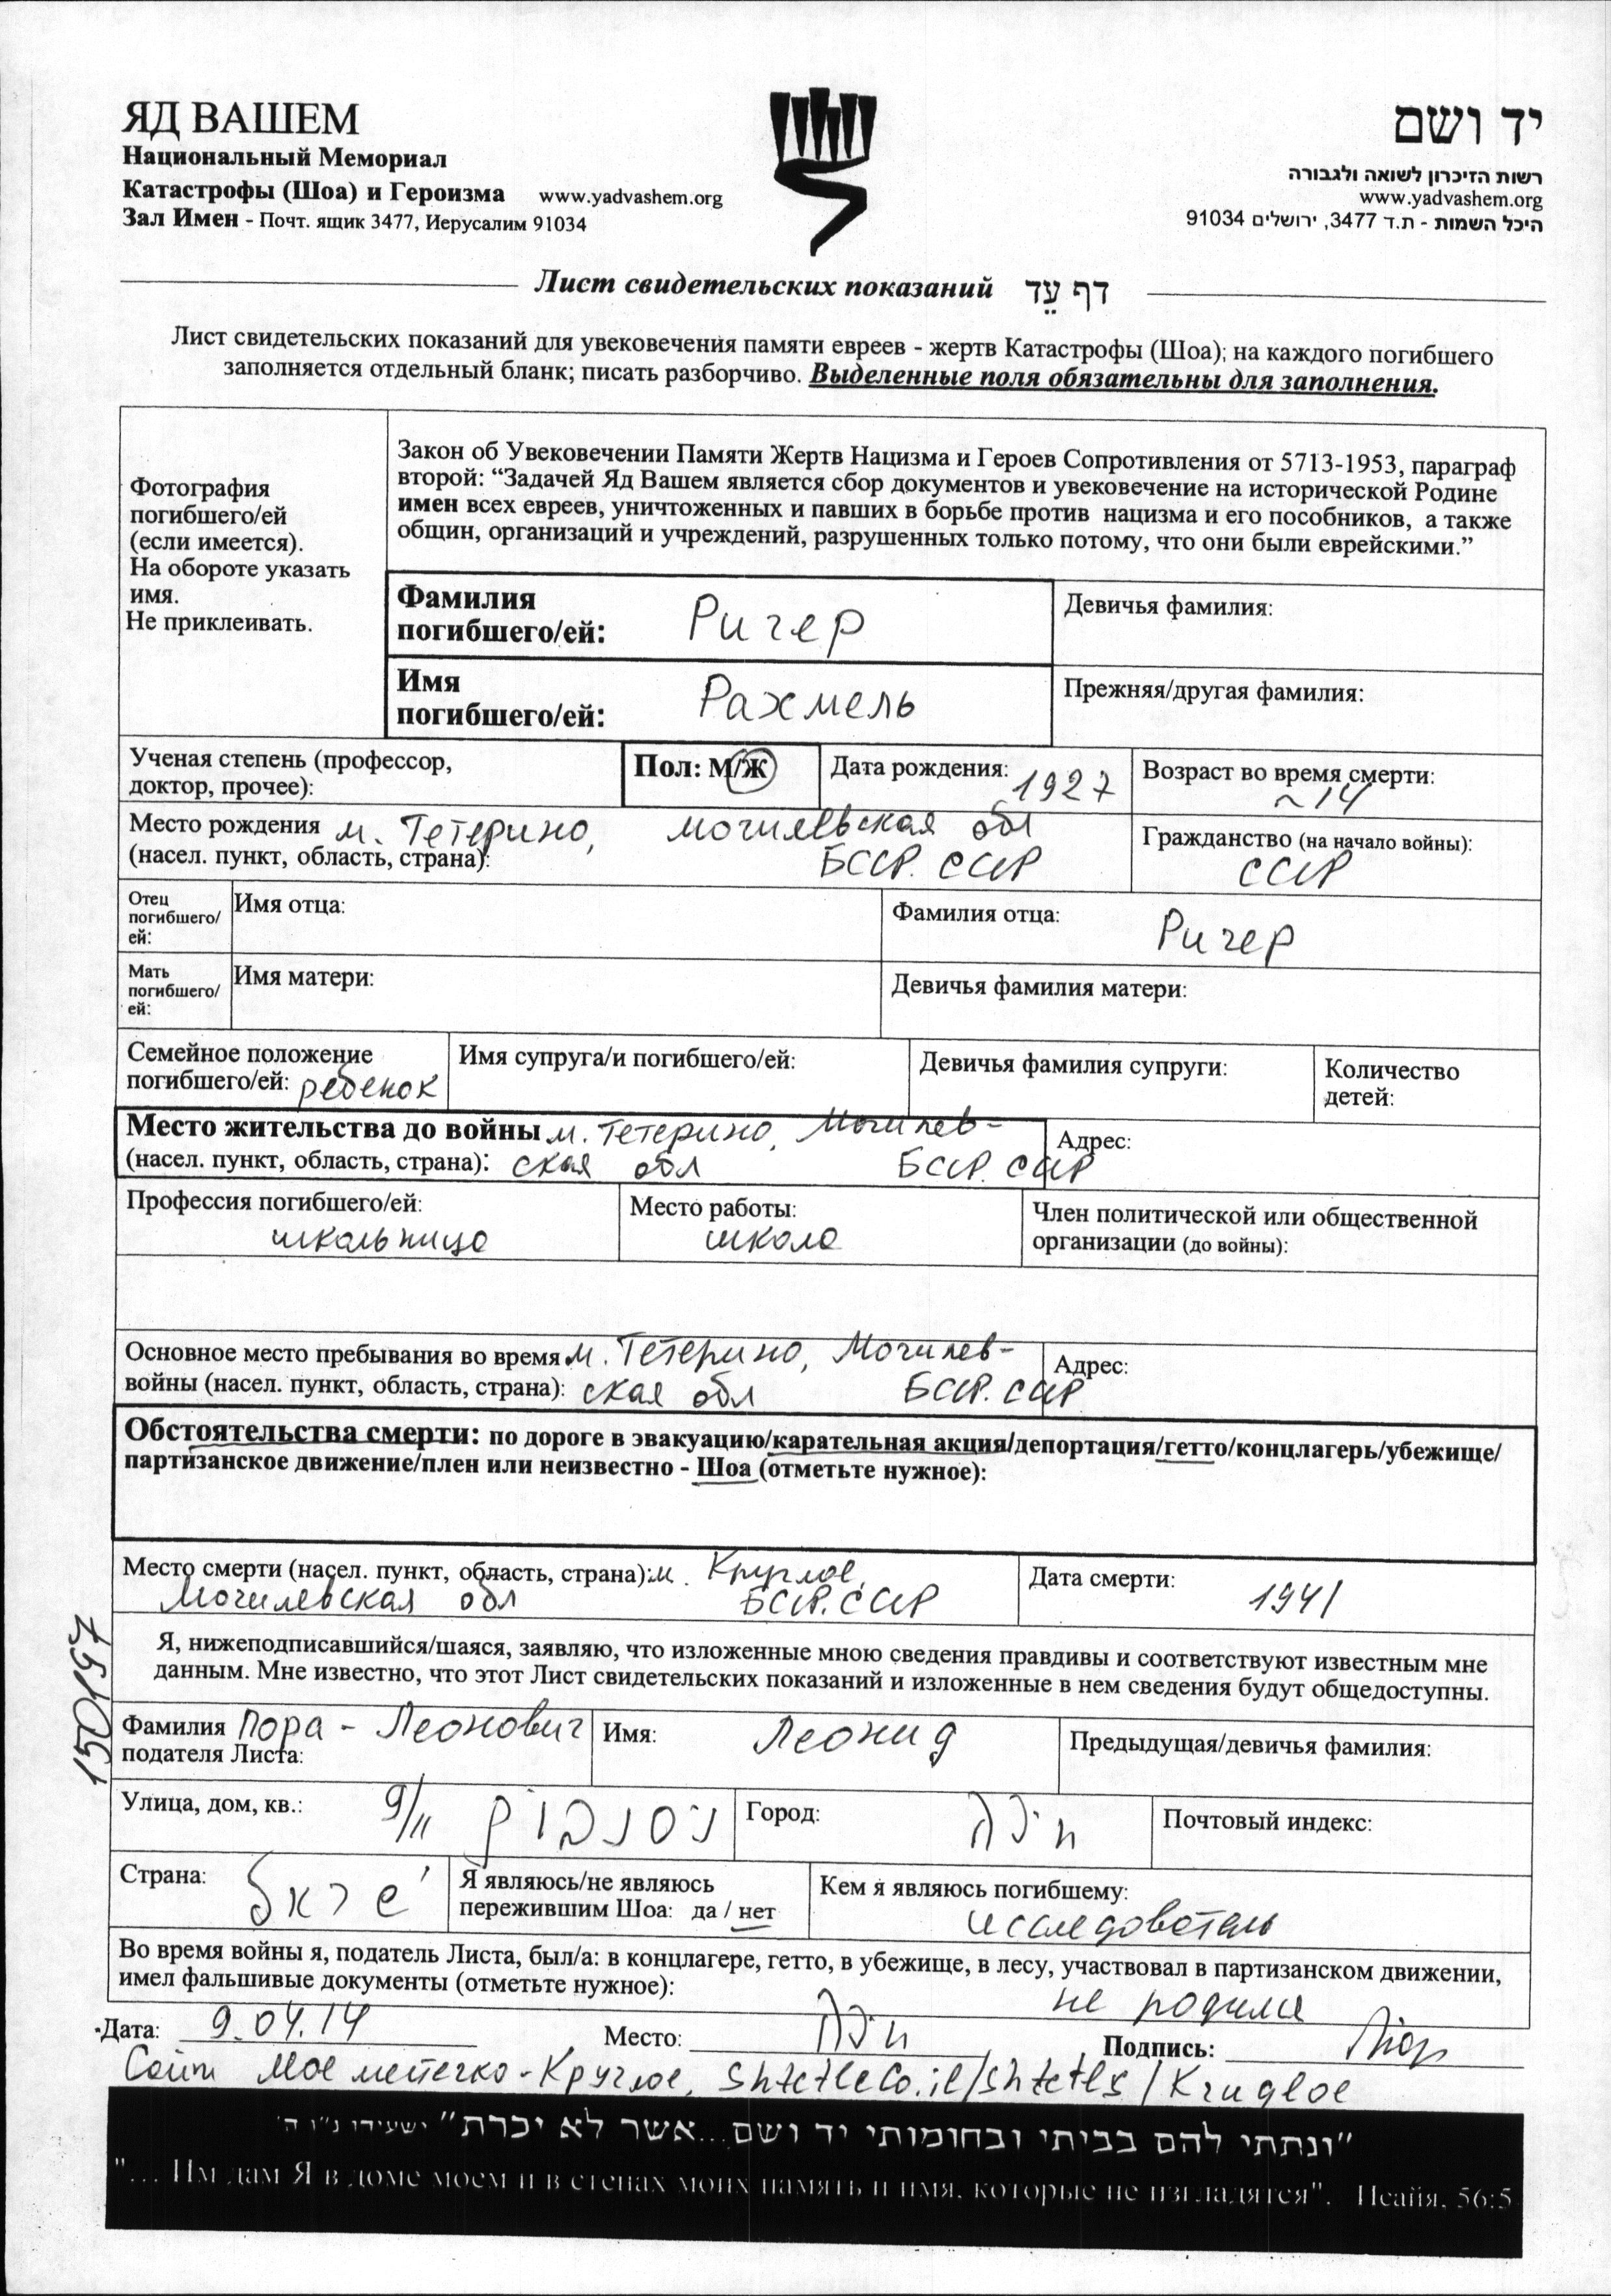 ЯД ВАШЕМ
Национальный Мемориал
Катастрофы (Шоа) и Героизма www.yadvashem.org
Зал Имен - Почт. ящик 3477, Иерусалим 91034
יד ושם
רשות הזיכרון לשואה ולגבורה
www.yadvashem.org
היכל השמות - ת.ד 3477, ירושלים 91034
Лист свидетельских показаний דף עֵד
Лист свидетельских показаний для увековечения памяти евреев - жертв Катастрофы (Шоа); на каждого погибшего
заполняется отдельный бланк; писать разборчиво. Выделенные поля обязательны для заполнения.
Фотография
погибшего/ей
(если имеется).
На обороте указать
имя.
Не приклеивать.
Закон об Увековечении Памяти Жертв Нацизма и Героев Сопротивления от 5713-1953, параграф
второй: “Задачей Яд Вашем является сбор документов и увековечение на исторической Родине
имен всех евреев, уничтоженных и павших в борьбе против нацизма и его пособников, а также
общин, организаций и учреждений, разрушенных только потому, что они были еврейскими.”
Фамилия
погибшего/ей: Ричер
Девичья фамилия:
Имя
погибшего/ей: Рахмель
Прежняя/другая фамилия:
Ученая степень (профессор,
доктор, прочее):
Пол: М/Ж
Дата рождения: 1927
Возраст во время смерти:
~14
Место рождения м. Тетерино, Могилевская обл
(насел. пункт, область, страна): БССР. СССР
Гражданство (на начало войны):
СССР
Отец
погибшего/
ей:
Имя отца:
Фамилия отца:
Ричер
Мать
погибшего/
ей:
Имя матери:
Девичья фамилия матери:
Семейное положение
погибшего/ей: ребенок
Имя супруга/и погибшего/ей:
Девичья фамилия супруги:
Количество
детей:
Место жительства до войны м. Тетерино, Могилев-
(насел. пункт, область, страна): ская обл БССР. СССР
Адрес:
Профессия погибшего/ей:
школьница
Место работы:
школа
Член политической или общественной
организации (до войны):
Основное место пребывания во время м. Тетерино, Могилев-
войны (насел. пункт, область, страна): ская обл БССР. СССР
Адрес:
Обстоятельства смерти: по дороге в эвакуацию/карательная акция/депортация/гетто/концлагерь/убежище/
партизанское движение/плен или неизвестно - Шоа (отметьте нужное):
Место смерти (насел. пункт, область, страна): м. Круглое,
Могилевская обл БССР. СССР
Дата смерти:
1941
150197
Я, нижеподписавшийся/шаяся, заявляю, что изложенные мною сведения правдивы и соответствуют известным мне
данным. Мне известно, что этот Лист свидетельских показаний и изложенные в нем сведения будут общедоступны.
Фамилия Пора - Леонович
подателя Листа:
Имя: Леонид
Предыдущая/девичья фамилия:
Улица, дом, кв.: 9/11
Город: חיפה
Почтовый индекс:
Страна: ישראל
Я являюсь/не являюсь
пережившим Шоа: да / нет
Кем я являюсь погибшему:
исследователь
Во время войны я, податель Листа, был/а: в концлагере, гетто, в убежище, в лесу, участвовал в партизанском движении,
имел фальшивые документы (отметьте нужное): не родился
Дата: 9.04.14 Место: חיפה Подпись:
Сайт Мое местечко - Круглое, shtetle.co.il/shtetls/Krugloe
"ונתתי להם בביתי ובחומותי יד ושם...אשר לא יכרת" ישעיהו נ"ו ה'
"... Им дам Я в доме моем и в стенах моих память и имя, которые не изгладятся". Исайя, 56:5